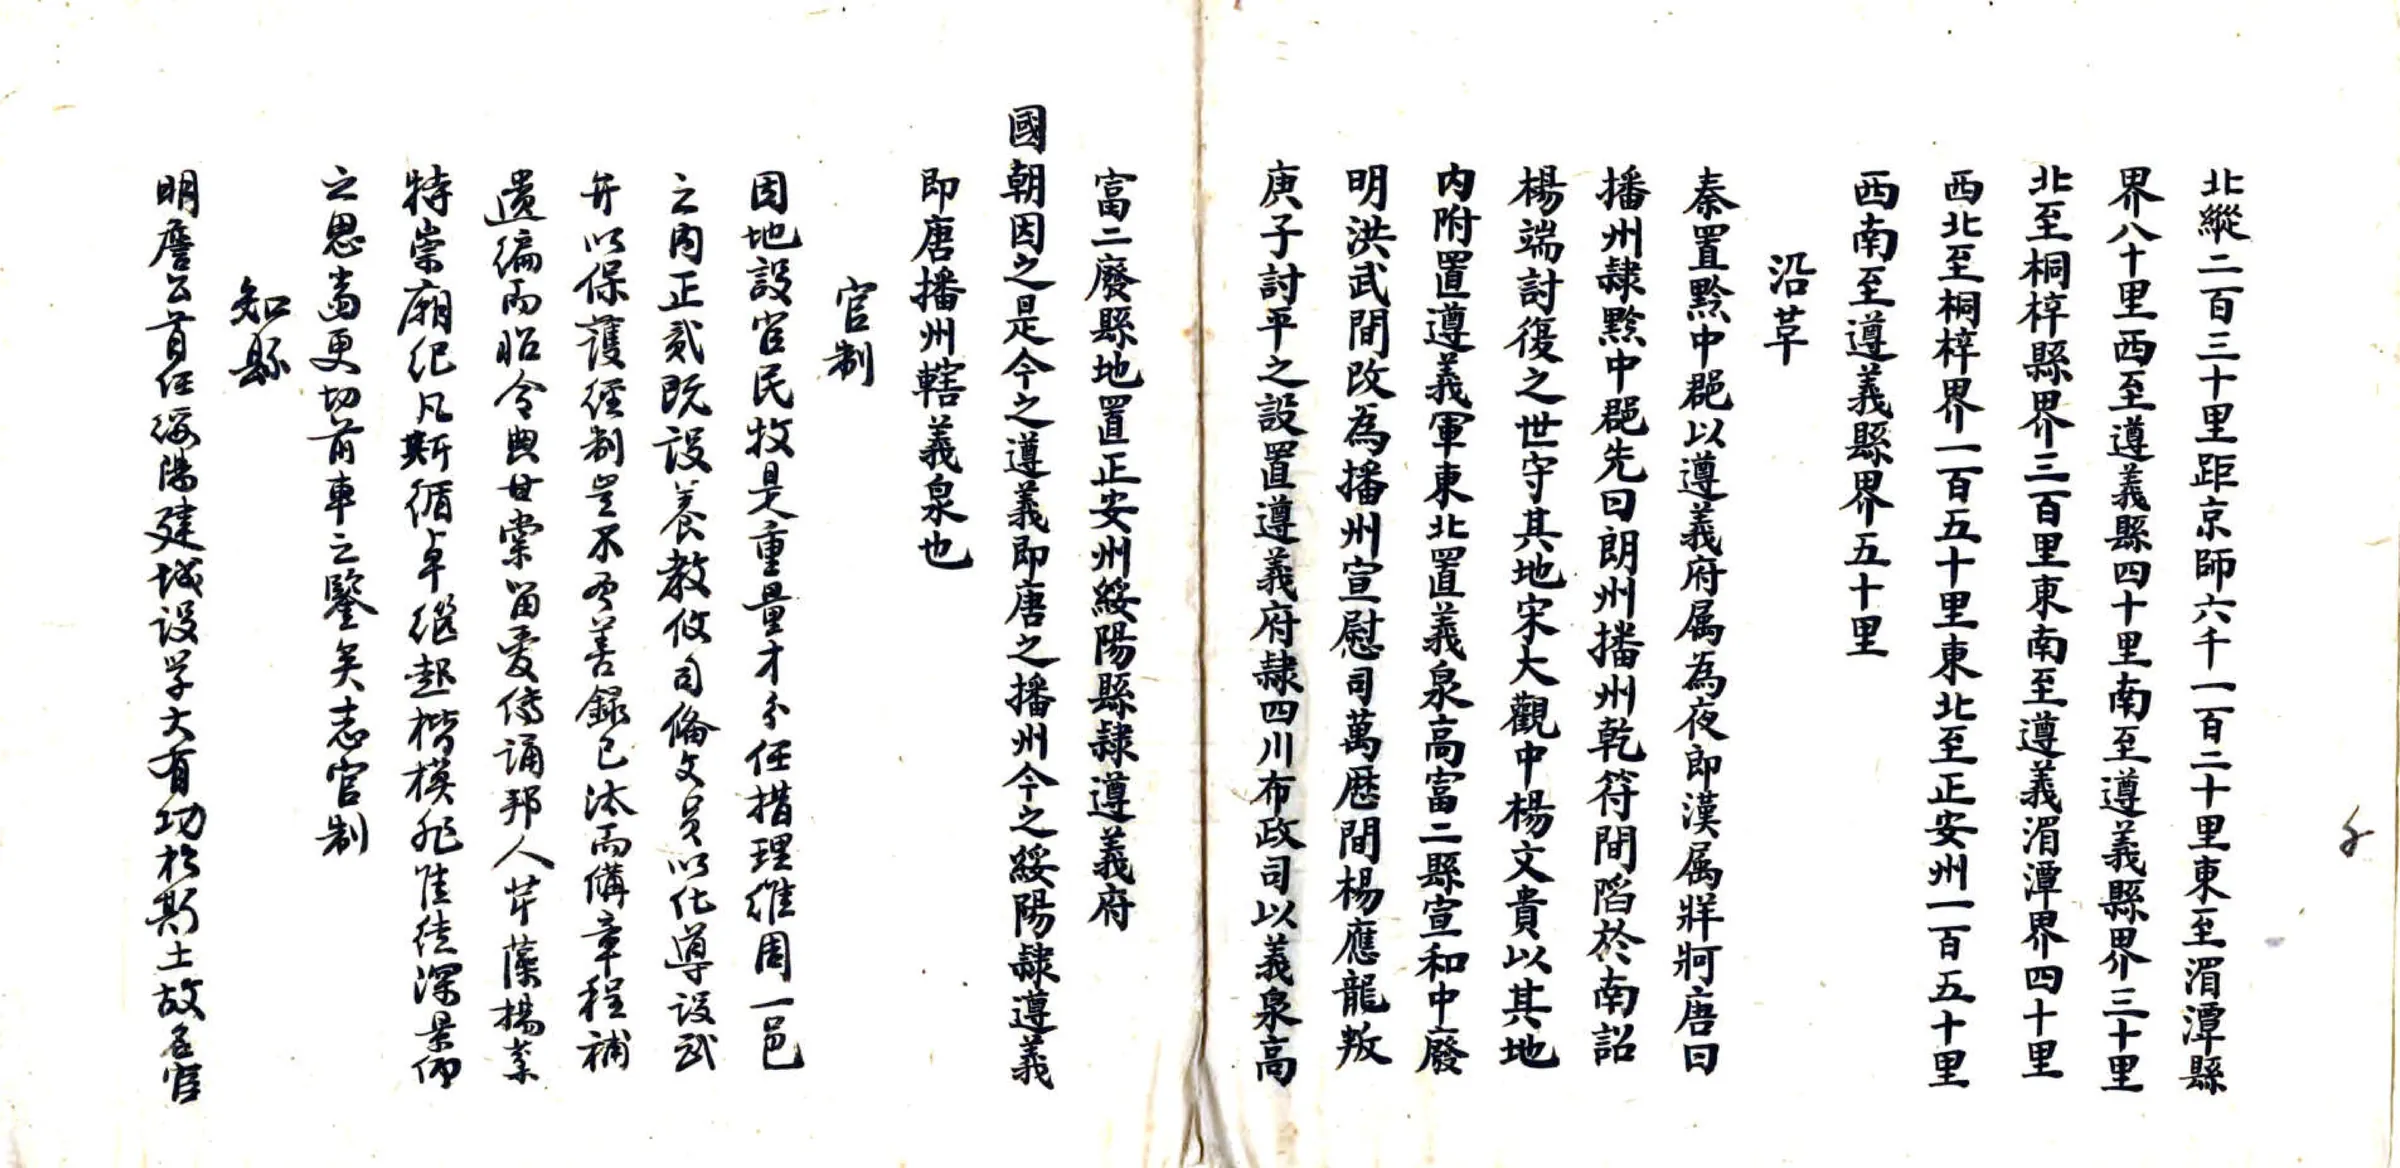 北縱二百三十里距京師六千一百二十里東至湄潭縣
界八十里西至遵義縣四十里南至遵義縣界三十里
北至桐梓縣界三百里東南至遵義湄潭界四十里
西北至桐梓界一百五十里東北至正安州一百五十里
西南至遵義縣界五十里
沿革
秦置黔中郡以遵義府属為夜郎漢属牂牁唐曰
播州隸黔中郡先曰朗州播州乾符間陷於南詔
楊端討復之世守其地宋大觀中楊文貴以其地
内附置遵義軍東北置義泉高富二縣宣和中廢
明洪武間改為播州宣慰司萬歷間楊應龍叛
庚子討平之設置遵義府隸四川布政司以義泉高
富二廢縣地置正安州綏陽縣隸遵義府
國朝因之是今之遵義即唐之播州今之綏陽隸遵義
即唐播州轄義泉也
官制
因地設官民牧是重量才分任措理維周一邑
之内正貳既設養教攸司俻文員以化導設武
弁以保護經制豈不有善錄已汰而備章程補
遺編而昭令典甘棠留愛傳誦邦人芹藻揚葇
特崇廟祀凡斯循卓繼起楷模非惟徒深景仰
之思尚更切前車之鑒矣志官制
知縣
明詹公首任綏陽建城设学大有功於斯土故名宦